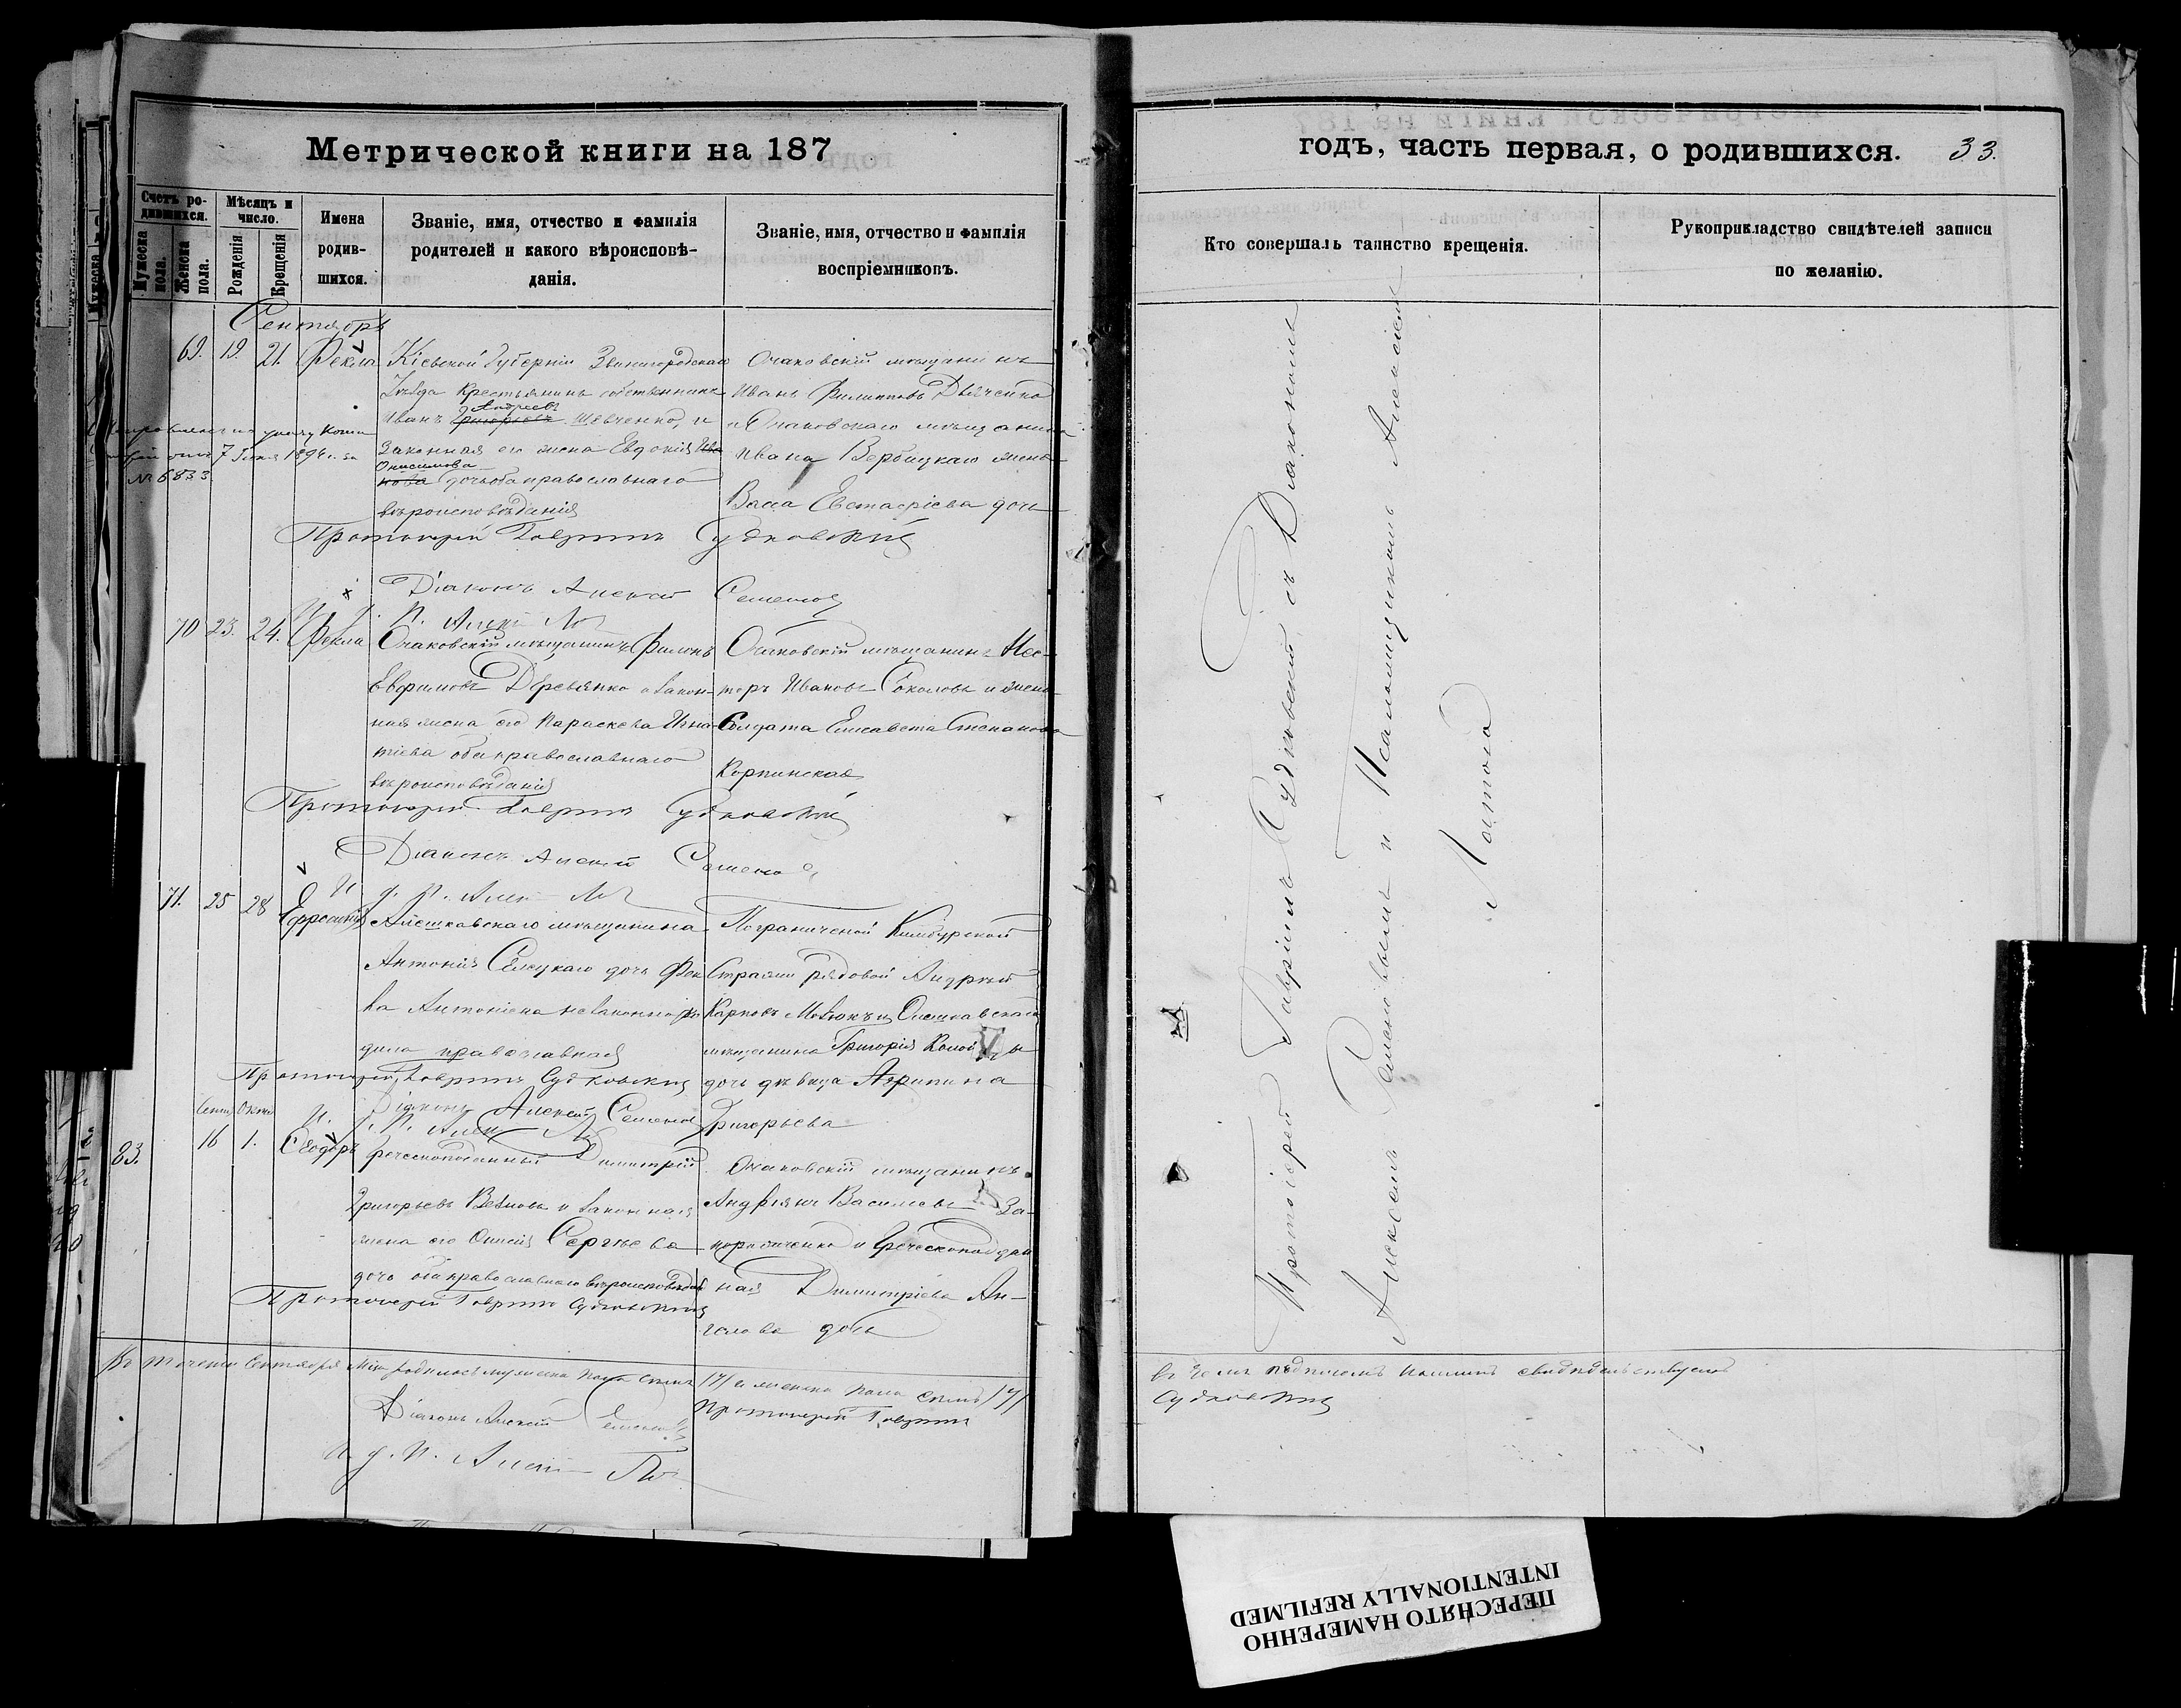 Метрической книги на 187
годъ, часть первая, о родившихся. 33.
Счетъ ро-
дившихся.
Мужеска
пола.
Женска
пола.
Мѣсяцъ и
число.
Рожденія
Крещенія
Имена
родив-
шихся.
Званіе, имя, отчество и фамилія
родителей и какого вѣроисповѣ-
данія.
Званіе, имя, отчество и фамилія
воспріемниковъ.
Кто совершалъ таинство крещенія.
Рукоприкладство свидѣтелей записи
по желанію.
Сентябрь
69. 19. 21. Фекла
Кіевской Губерніи Звенигородскаго
Уѣзда Крестьянинъ собственникъ
Андреевъ
Иванъ Григорьевъ Шевченко, и
законная его жена Евдокія Ива
Онисимова
нова дочь оба православнаго
вѣроисповѣданія
7 Іюня 1894 г. за
№ 6833
Очаковскій мѣщанинъ
Иванъ Филипповъ Дьяченко
и Очаковскаго мѣщанина
Ивана Вербицкаго жена
Васса Евстафіева дочь
Протоіерей Гавріилъ Судковскій
Діаконъ Алексѣй Семеновъ
70 23. 24. Фекла
Очаковскій мѣщанинъ Филонъ
Евфимовъ Деревянко и закон-
ная жена его Параскева Игна-
тіева оба православнаго
вѣроисповѣданія
Очаковскій мѣщанинъ Нес-
торъ Ивановъ Соколовъ и жена
Солдата Елисавета Степанова
Корпинская
Протоіерей Гавріилъ Судковскій
Діаконъ Алексѣй Семеновъ
71. 25 28 Ефросинія
Алешковскаго мѣщанина
Антонія дочь Фек
ла Антоніева незаконно ро
дила православная
Пограничной Кинбурской
Стражи рядовой Андрей
Карповъ и Олешковскаго
мѣщанина Григорія
дочь дѣвица Агрипина
Григорьева
Протоіерей Гавріилъ Судковскій
Діаконъ Алексѣй Семеновъ
Сент Октя
83. 16 1. Ѳеодоръ
Греческоподанный Димитрій
Григорьевъ и законная
жена его Сергѣева
дочь оба православнаго вѣроисповѣданія
Очаковскій мѣщанинъ
Андріянъ Васильевъ За-
порожченко и Греческоподдан
ная Димитріева Ан-
гелова дочь
Протоіерей Гавріилъ Судковскій
Въ теченіи Сентября м-ца родилось мужеска пола семь /7/ а женска пола семь /7/
Протоіерей Гавріилъ
Діаконъ Алексѣй Семеновъ
Протоіерей Гавріилъ Судковскій, съ Діакономъ
Алексѣемъ Семеновымъ и Псаломщикомъ Алексѣемъ
въ чемъ подписомъ нашимъ свидѣтельствуемъ
Судковскій
ПЕРЕСНЯТО НАМЕРЕННО
INTENTIONALLY REFILMED